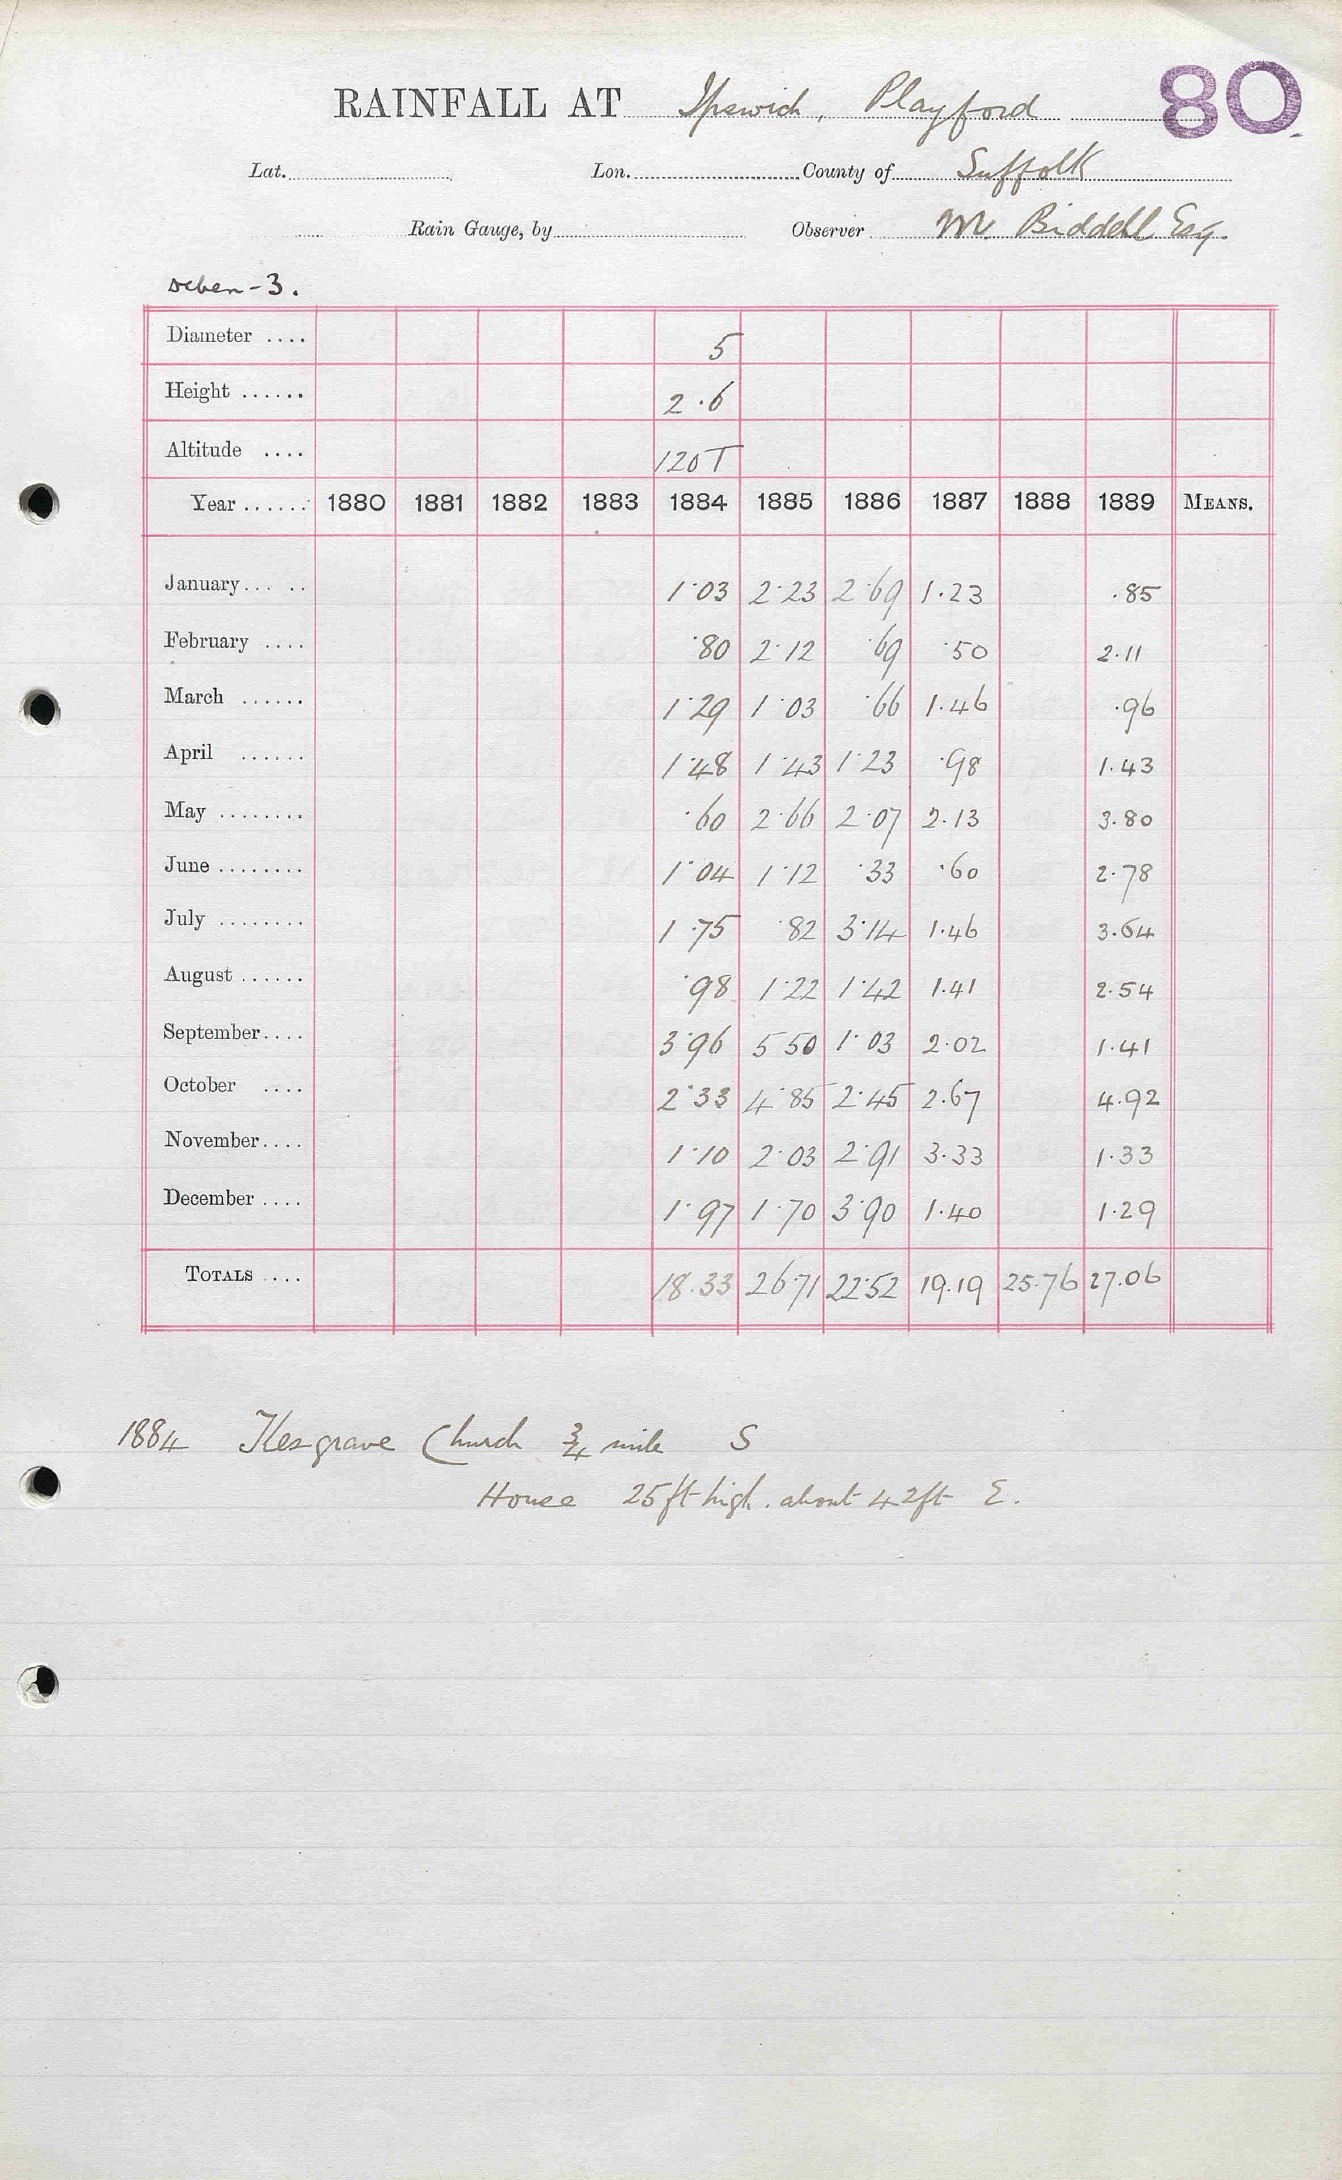 RAINFALL AT Ipswich, Playford 80
Lat. Lon. County of Suffolk
Rain Gauge, by Observer M. Biddell Esq.
Deben-3.
Diameter .... 5
Height ...... 2.6
Altitude .... 120T
Year ...... 1880 1881 1882 1883 1884 1885 1886 1887 1888 1889 MEANS.
January... .. 1.03 2.23 2.69 1.23 .85
February .... .80 2.12 .69 .50 2.11
March ...... 1.29 1.03 .66 1.46 .96
April ...... 1.48 1.43 1.23 .98 1.43
May ........ .60 2.66 2.07 2.13 3.80
June ........ 1.04 1.12 .33 .60 2.78
July ........ 1.75 .82 3.14 1.46 3.64
August ...... .98 1.22 1.42 1.41 2.54
September.... 3.96 5 50 1.03 2.02 1.41
October .... 2.33 4.85 2.45 2.67 4.92
November.... 1.10 2.03 2.91 3.33 1.33
December .... 1.97 1.70 3.90 1.40 1.29
TOTALS .... 18.33 26.71 22.52 19.19 25.76 27.06
1884 Kesgrave Church ¾ mile S
House 25ft high. about 42ft E.